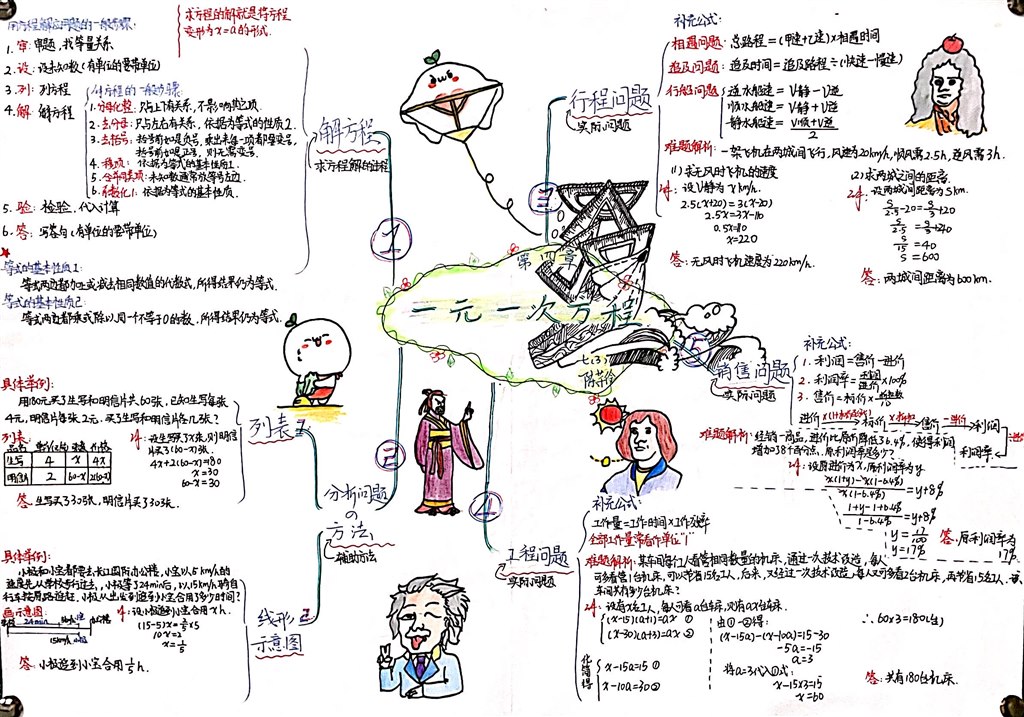 用方程解应用题的一般步骤:
1. 审: 审题, 找等量关系
2. 设: 设未知数(有单位的要带单位)
3. 列: 列方程
4. 解: 解方程
求方程的解就是将方程
变形为x=a的形式.
解方程的一般步骤:
1. 分母化整: 只与上下有关系, 不影响其它项.
2. 去分母: 只与左右有关系, 依据为等式的性质2.
3. 去括号: 括号前如是负号, 乘出来每一项都要变号,
括号前如是正号, 则无需变号.
4. 移项: 依据为等式的基本性质1.
5. 合并同类项: 未知数通常放等号左边.
6. 系数化1: 依据为等式的基本性质.
5. 验: 检验, 代入计算
6. 答: 写答句(有单位的要带单位)
等式的基本性质1:
等式两边都加上或减去相同数值的代数式, 所得结果仍为等式.
等式的基本性质2:
等式两边都乘或除以同一个不等于0的数, 所得结果仍为等式.
解方程
求方程解的过程
1
具体举例:
用180元买了生写和明信片共60张, 已知生写每张
4元, 明信片每张2元. 买了生写和明信片各几张?
列表:
品名 单价(元/张) 数量 价格
生写 4 x 4x
明信片 2 60-x 2(60-x)
解: 设生写买了x张, 则明信
片买了(60-x)张.
4x+2(60-x)=180
x=30
60-x=30
答: 生写买了30张, 明信片买了30张.
列表1
2
分析问题
の
方法,
辅助方法
具体举例:
小极和小宝都要去长江国际办公楼, 小宝以5km/h的
速度先从学校步行过去, 小极等了24min后, 以15km/h的自
行车按原路追赶, 小极从出发到追到小宝合用了多少时间?
画示意图:
24min
15km/h 小极
办公楼
解: 设小极追到小宝合用xh.
(15-5)x=⅖x5
10x=2
x=⅕
答: 小极追到小宝合用⅕h.
线形2
示意图
第四章
一元一次方程
七(3)
3
行程问题
实际问题
补充公式:
相遇问题: 总路程=(甲速+乙速)x相遇时间
追及问题: 追及时间=追及路程÷(快速-慢速)
行船问题
逆水船速=V静-V逆
顺水船速=V静+V逆
静水船速=(V顺+V逆)/2
难题解析: 一架飞机在两城间飞行, 风速为20km/h, 顺风需2.5h, 逆风需3h.
(1)求无风时飞机的速度
解: 设V静为x km/h.
2.5(x+20)=3(x-20)
2.5x=3x-110
0.5x=110
x=220
答: 无风时飞机速度为220km/h.
(2)求两城之间的距离.
解: 设两城间距离为Skm.
S/2.5-20=S/3+20
S/2.5=S/3+40
S/15=40
S=600
答: 两城间距离为600km.
5
销售问题
实际问题
补充公式:
1. 利润=售价-进价
2. 利润率=利润/进价x100%
3. 售价=标价x折扣/10
利润
利润率
难题解析: 经销一商品, 进价比原价降低了6.4%, 使得利润
增加了8个百分点, 原利润率是多少?
解: 设原进价为x, 原利润率为y.
[x(1+y)-x(1-6.4%)]/[x(1-6.4%)]=y+8%
(1+y-1+6.4%)/(1-6.4%)=y+8%
y=17/100
y=17%
答: 原利润率为
17%
4
工程问题
实际问题
补充公式:
工作量=工作时间x工作效率
全部工作量常看作单位“1”
难题解析: 某车间每个工人看管相同数量的机床, 通过一次技术改造, 每人
可多看管1台机床, 可以节省15名工人, 后来, 又经过一次技术改造, 每人又可多看2台机床, 再节省15名工人. 该
车间共有多少台机床?
解: 设有x名工人, 每人可看a台车床, 则有ax台车床.
(x-15)(a+1)=ax ①
(x-30)(a+3)=ax ②
化简得
x-15a=15 ①
x-10a=30 ②
由①-②得:
(x-15a)-(x-10a)=15-30
-5a=-15
a=3
将a=3代入①式:
x-15x3=15
x=60
∴60x3=180(台)
答: 共有180台机床.